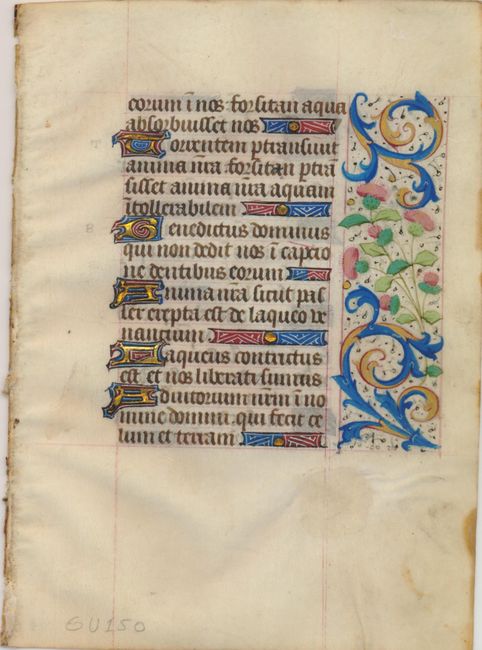 eorum ī nos forsitan aqua
absorbuisset nos
Torrentem ptransiuit
anima nr̄a forsitan ptrā
sisset anima nr̄a aquam
ītollerabilem
Benedictus dominus
qui non dedit nos ī captio
ne dentibus eorum
Anima nr̄a sicut pas
ser erepta est de laqueo ve
nantium
Laqueus contritus
est et nos liberati sumus
Adiutorium nr̄m ī no
mine domini qui fecit ce
lum et terram
B
GU150